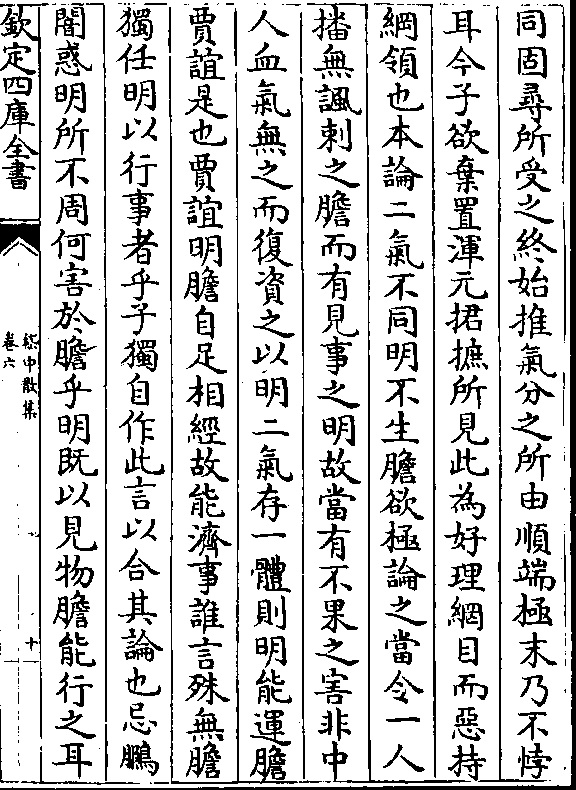 同固尋所受之終始推氣分之所由順端極末乃不悖
耳今子欲棄置渾元捃摭所見此為好理網目而惡持
綱領也本論二氣不同明不生膽欲極論之當令一人
播無諷刺之膽而有見事之明故當有不果之害非中
人血氣無之而復資之以明二氣存一體則明能運膽
賈誼是也賈誼明膽自足相經故能濟事誰言殊無膽
獨任明以行事者乎子獨自作此言以合其論也忌鵩
闇惑明所不周何害於膽乎明既以見物膽能行之耳
欽定四庫全書
嵇中散集
卷六
十